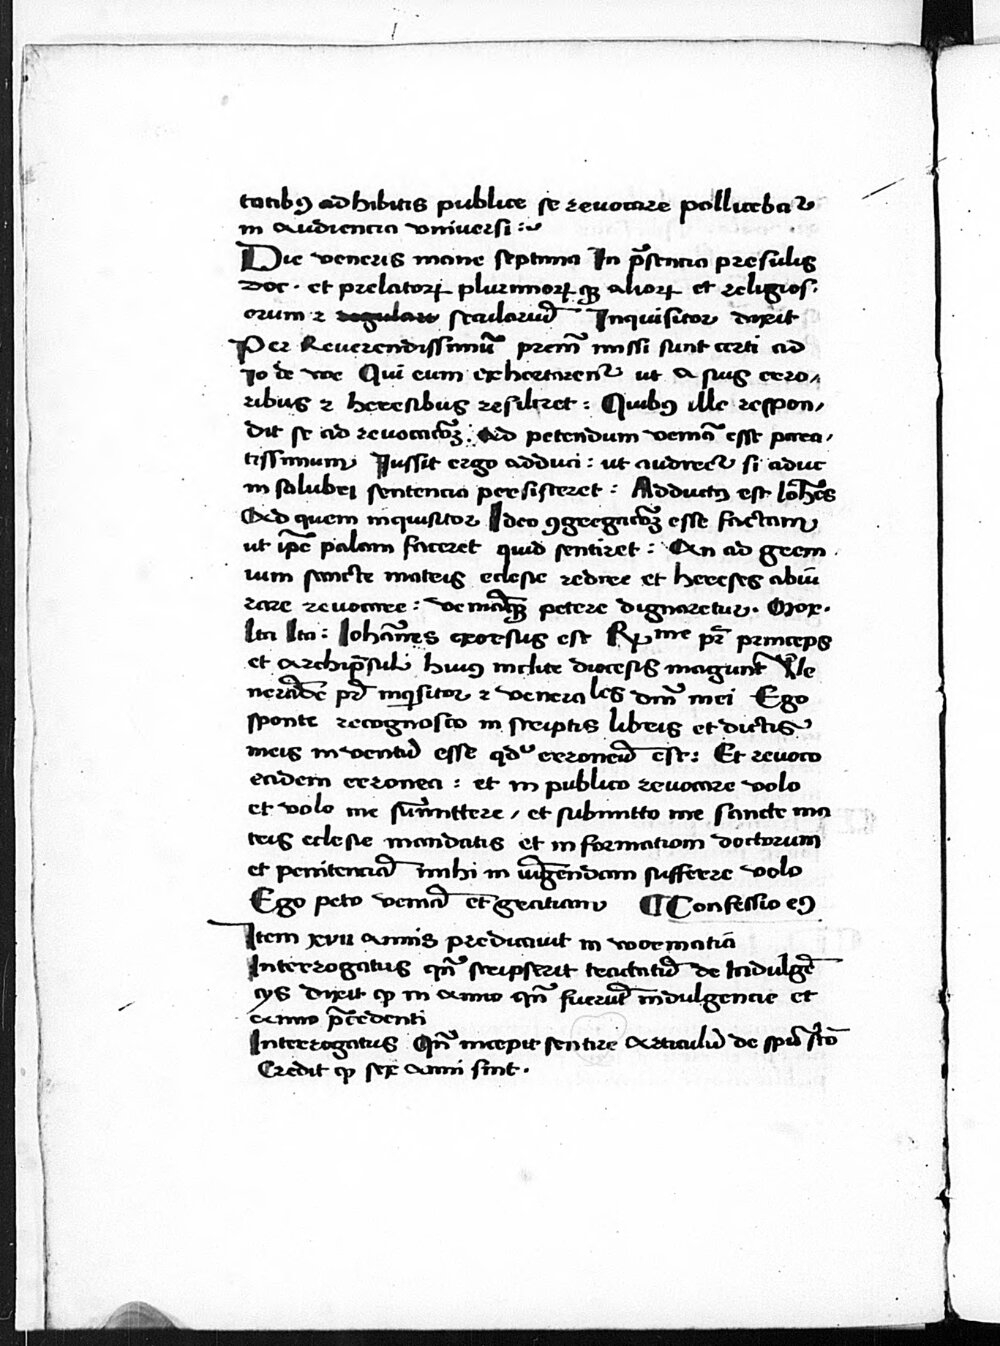 tatibꝰ adhibitis publice se reuocare pollicebatur
in audiencia vniuersi :~
Die veneris mane septima In p̄sencia presulis
doc· et prelatorꝝ plurimorꝝqꝫ aliorꝝ et religios·
orum ꝛ regulare seculariū Inquisitor dixit
Per Reuerendissimū prem̄ missi sunt certi ad
Jo de we Qui eum exhortarent̉ ut a suis erro,
ribus ꝛ heresibus resiliret : Quibꝰ ille respon,
dit se ad reuocacōꝫ : Ad petendum veniā esse para,
tissimum Jussit ergo adduci : ut audiret̉ si aduc
in salubri sentencia persisteret : Adductꝰ est Joh̄es
Ad quem inquisitor Ideo ꝯgregacōꝫ esse factam
ut ip̄e palam faceret quid sentiret : An ad grem
ium sancte matris eclesie redire et hereses abiu
rare reuocare : veniāqꝫ petere dignaretur. Mox.
Ita Ita : Johan̄es exorsus est Rꝫme pr̄ princeps
et archip̄sul huiꝰ inclite diocesis magunt̄ Ve
nerādē pr̄ inq̄sitor ꝛ venerales dn̄i mei Ego
sponte recognosco in scriptis libris et dictis
meis inventū esse qd̉ erroneū est : Et reuoco
eadem erronea : et in publico reuocare volo
et volo me sūmittere, et submitto me sancte ma
tris eclesie mandatis et informationi doctorum
et penitenciā mihi iniūgendam sufferre volo
Ego peto veniā et gratiam ¶ Confessio eiꝰ
Item xvii annis predicauit in wormatia
Interrogatus qn̄ scripserit tractatū de Indulgē
cijs dixit ꝙ in anno qn̄ fuerūt indulgencie et
anno p̄cedenti
Interrogatus Qn̄ incepit sentire articulū de spū sc̄o
Credit ꝙ sex anni sint·